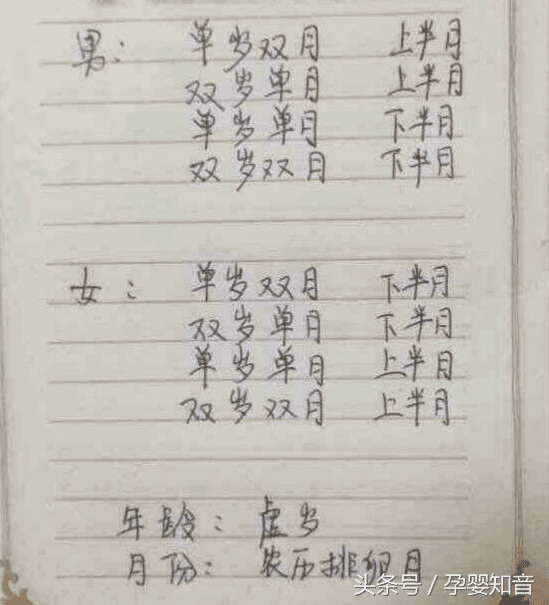 男： 单岁双月 上半月
双岁单月 上半月
单岁单月 下半月
双岁双月 下半月
女： 单岁双月 下半月
双岁单月 下半月
单岁单月 上半月
双岁双月 上半月
年龄： 虚岁
月份： 农历排卵月
头条号／孕婴知音